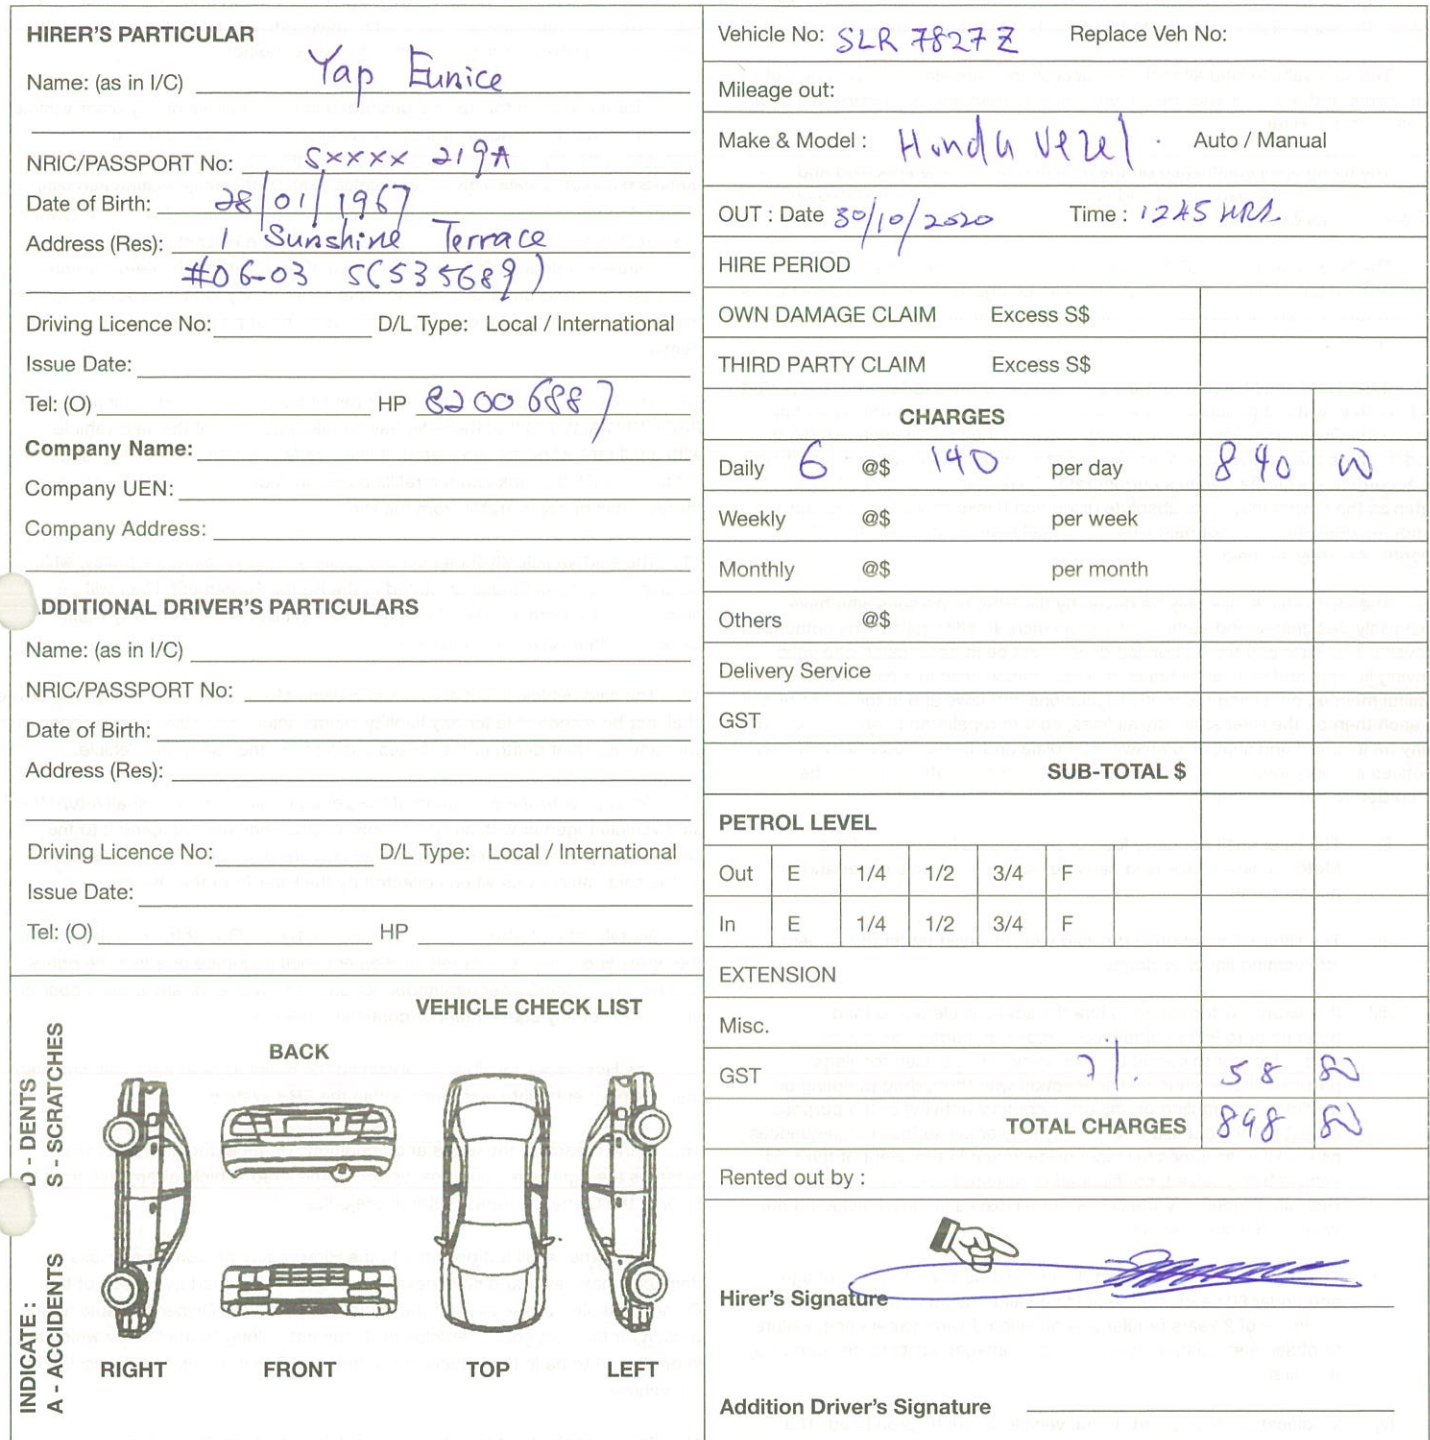 HIRER'S PARTICULAR
Name: (as in I/C) Yap Eunice
NRIC/PASSPORT No: SXXXX 219A
Date of Birth: 28/01/1967
Address (Res): 1 Sunshine Terrace
#06-03 S(535689)
Driving Licence No: D/L Type: Local / International
Issue Date:
Tel: (O) HP 82006887
Company Name:
Company UEN:
Company Address:
ADDITIONAL DRIVER'S PARTICULARS
Name: (as in I/C)
NRIC/PASSPORT No:
Date of Birth:
Address (Res):
Driving Licence No: D/L Type: Local / International
Issue Date:
Tel: (O) HP
VEHICLE CHECK LIST
INDICATE :
A - ACCIDENTS
D - DENTS
S - SCRATCHES
BACK
RIGHT FRONT TOP LEFT
Vehicle No: SLR 7827Z Replace Veh No:
Mileage out:
Make & Model : Honda Vezel . Auto / Manual
OUT : Date 30/10/2020 Time : 1245 HRS
HIRE PERIOD
OWN DAMAGE CLAIM Excess S$
THIRD PARTY CLAIM Excess S$
CHARGES
Daily 6 @$ 140 per day 840 00
Weekly @$ per week
Monthly @$ per month
Others @$
Delivery Service
GST
SUB-TOTAL $
PETROL LEVEL
Out E 1/4 1/2 3/4 F
In E 1/4 1/2 3/4 F
EXTENSION
Misc.
GST 7%. 58 80
TOTAL CHARGES 898 80
Rented out by :
Hirer's Signature
Addition Driver's Signature